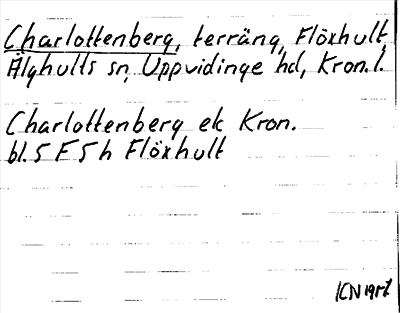 Charlottenberg, terräng, Flöxhult,
Älghults sn, Uppvidinge hd, Kron. l.
Charlottenberg ek Kron.
bl. 5 F 5 h Flöxhult